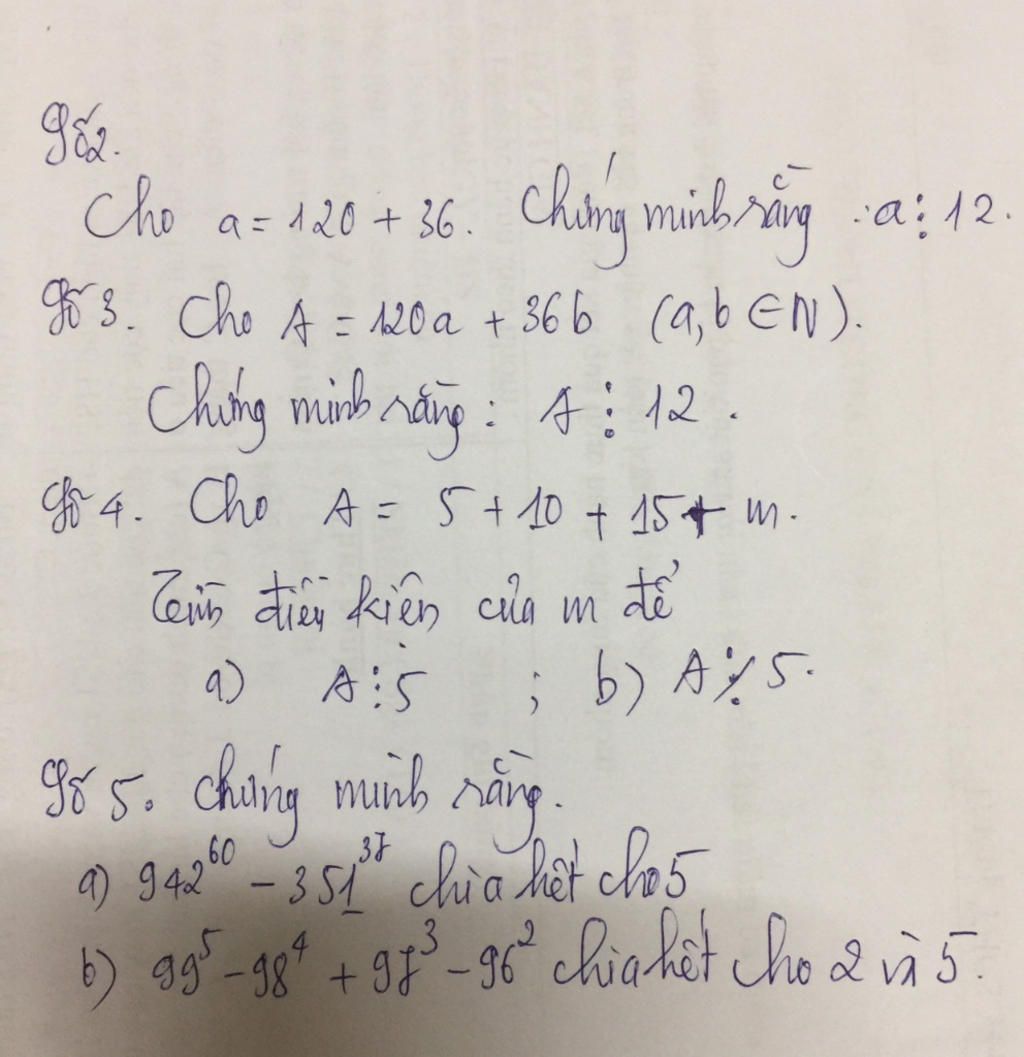 Số 2.
Cho a = 120 + 36. Chứng minh rằng : a ⋮ 12.
Số 3. Cho A = 120a + 36b (a, b ∈ N).
Chứng minh rằng : A ⋮ 12.
Số 4. Cho A = 5 + 10 + 15 + m.
Tìm điều kiện của m để
a) A ⋮ 5 ; b) A ⋮̸ 5.
Số 5. Chứng minh rằng.
a) 942⁶⁰ – 351³⁷ chia hết cho 5
b) 99⁵ – 98⁴ + 97³ – 96² chia hết cho 2 và 5.